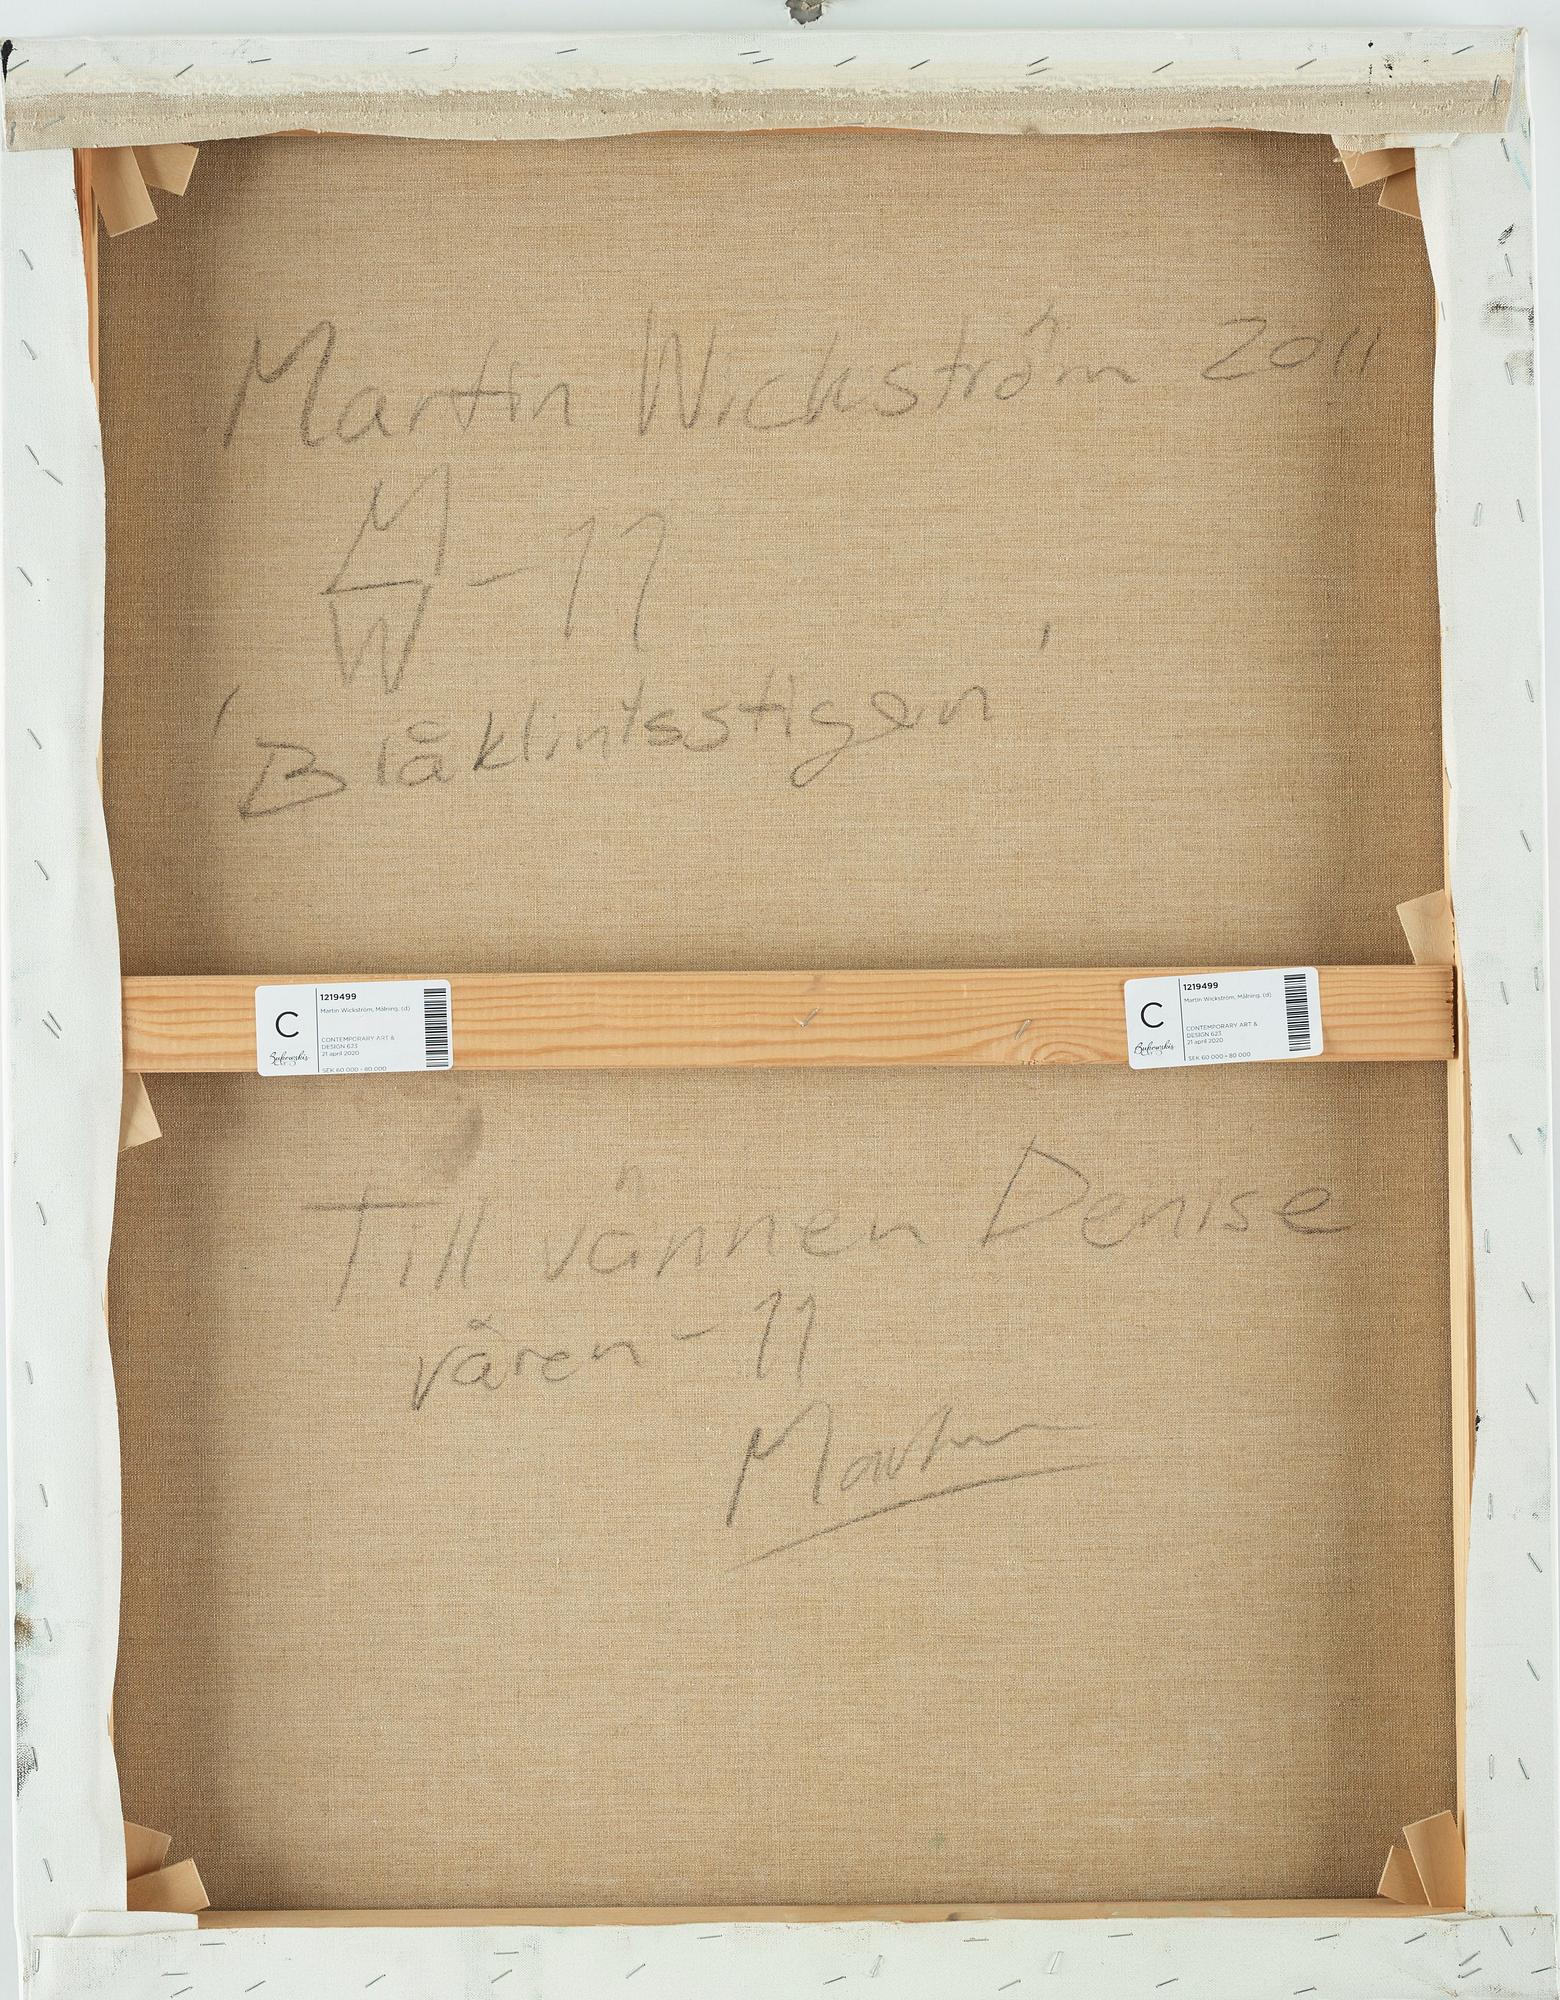 Martin Wickström 2011
M
W -11
'Blåklintsstigen'
C
Bukowskis
1219499
Martin Wickström, Målning, (d)
CONTEMPORARY ART &
DESIGN 623
21 april 2020
SEK 60 000 - 80 000
C
Bukowskis
1219499
Martin Wickström, Målning, (d)
CONTEMPORARY ART &
DESIGN 623
21 april 2020
SEK 60 000 - 80 000
Till vännen Denise
våren -11
Martin